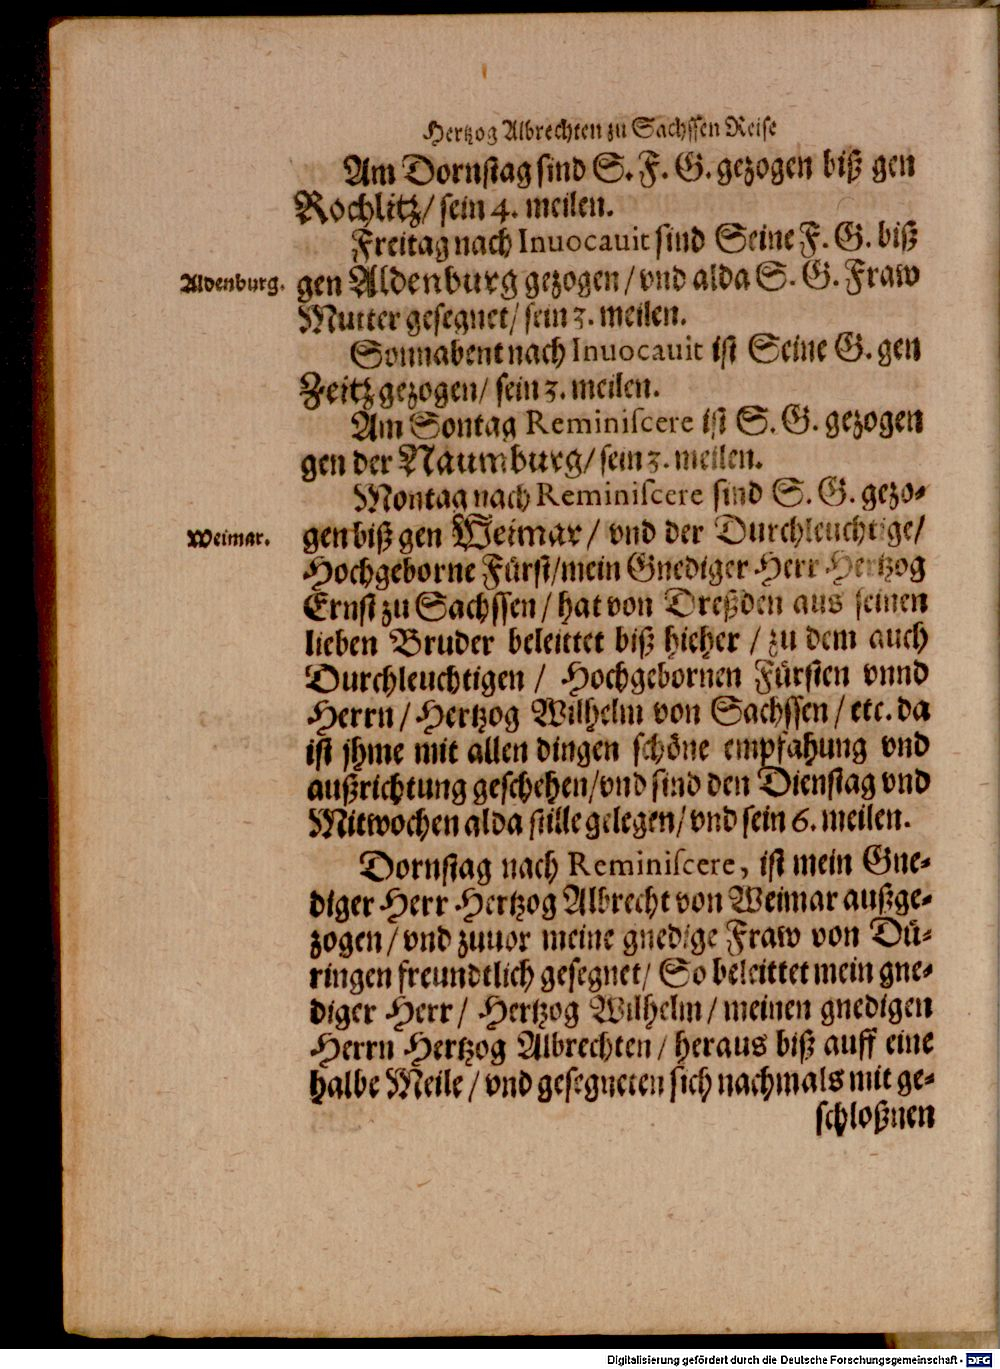 Hertzog Albrechten zu Sachssen Reise
Am Dornstag sind S. F. G. gezogen biß gen
Rochlitz/ sein 4. meilen.
Freitag nach Inuocauit sind Seine F. G. biß
Aldenburg.
gen Aldenburg gezogen/ vnd alda S. G. Fraw
Mutter gesegnet/ sein 3. meilen.
Sonnabent nach Inuocauit ist Seine G. gen
Zeitz gezogen/ sein 3. meilen.
Am Sontag Reminiſcere ist S. G. gezogen
gen der Naumburg/ sein 3. meilen.
Montag nach Reminiſcere sind S. G. gezo-
Weimar.
gen biß gen Weimar/ vnd der Durchleuchtige/
Hochgeborne Fürst/ mein Gnediger Herr Hertzog
Ernst zu Sachssen/ hat von Dreßden aus seinen
lieben Bruder beleittet biß hieher/ zu dem auch
Durchleuchtigen/ Hochgebornen Fürsten vnnd
Herrn/ Hertzog Wilhelm von Sachssen/ etc. da
ist jhme mit allen dingen schöne empfahung vnd
außrichtung geschehen/ vnd sind den Dienstag vnd
Mitwochen alda stille gelegen/ vnd sein 6. meilen.
Dornstag nach Reminiſcere, ist mein Gne-
diger Herr Hertzog Albrecht von Weimar außge-
zogen/ vnd zuuor meine gnedige Fraw von Dü-
ringen freundtlich gesegnet/ So beleittet mein gne-
diger Herr/ Hertzog Wilhelm/ meinen gnedigen
Herrn Hertzog Albrechten/ heraus biß auff eine
halbe Meile/ vnd gesegneten sich nachmals mit ge-
schloßnen
Digitalisierung gefördert durch die Deutsche Forschungsgemeinschaft - DFG